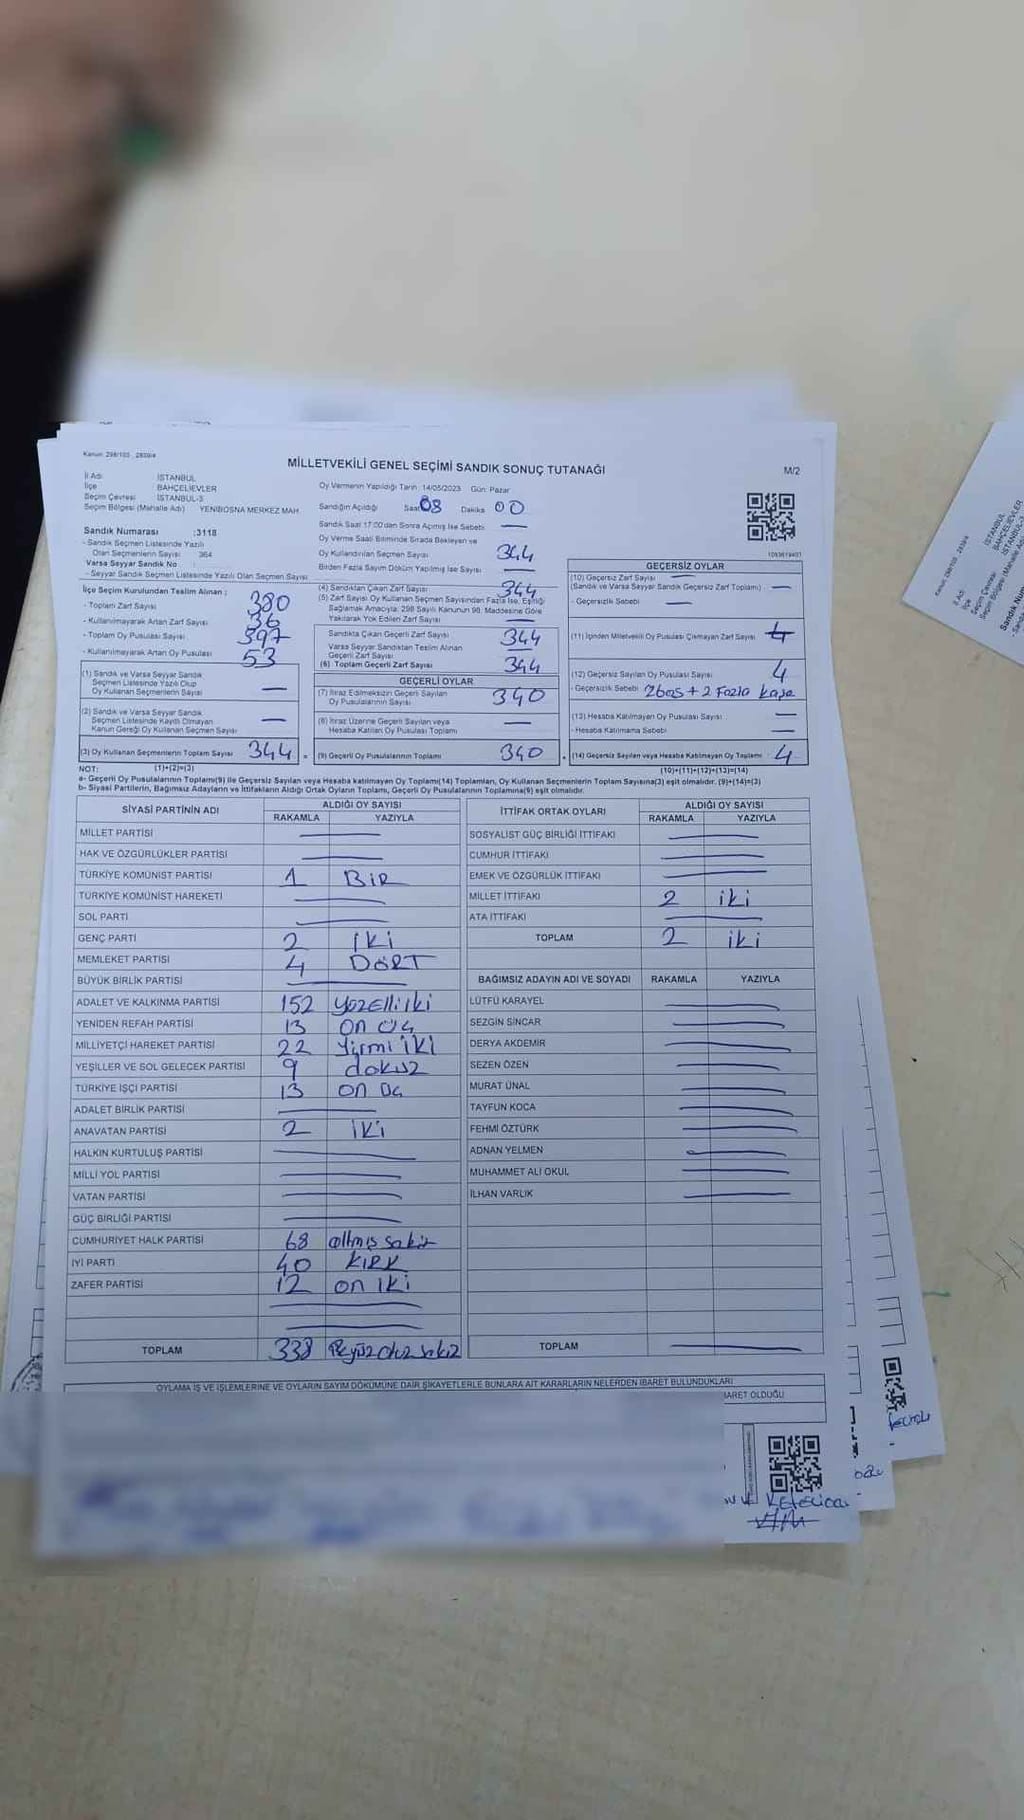 Kanun: 298/105 , 2839/4
MİLLETVEKİLİ GENEL SEÇİMİ SANDIK SONUÇ TUTANAĞI
M/2
İl Adı İSTANBUL
İlçe BAHÇELİEVLER
Seçim Çevresi İSTANBUL-3
Seçim Bölgesi (Mahalle Adı) YENİBOSNA MERKEZ MAH.
Sandık Numarası :3118
- Sandık Seçmen Listesinde Yazılı
Olan Seçmenlerin Sayısı 364
Varsa Seyyar Sandık No
- Seyyar Sandık Seçmen Listesinde Yazılı Olan Seçmen Sayısı
Oy Vermenin Yapıldığı Tarih : 14/05/2023 Gün: Pazar
Sandığın Açıldığı Saat 08 Dakika 00
Sandık Saat 17:00'dan Sonra Açılmış İse Sebebi —
Oy Verme Saati Bitiminde Sırada Bekleyen ve
Oy Kullandırılan Seçmen Sayısı 344
Birden Fazla Sayım Döküm Yapılmış İse Sayısı —
İlçe Seçim Kurulundan Teslim Alınan :
- Toplam Zarf Sayısı 380
- Kullanılmayarak Artan Zarf Sayısı 36
- Toplam Oy Pusulası Sayısı 397
- Kullanılmayarak Artan Oy Pusulası 53
(1) Sandık ve Varsa Seyyar Sandık
Seçmen Listesinde Yazılı Olup
Oy Kullanan Seçmenlerin Sayısı —
(2) Sandık ve Varsa Seyyar Sandık
Seçmen Listesinde Kayıtlı Olmayan
Kanun Gereği Oy Kullanan Seçmen Sayısı —
(3) Oy Kullanan Seçmenlerin Toplam Sayısı 344
(1)+(2)=(3)
(4) Sandıktan Çıkan Zarf Sayısı 344
(5) Zarf Sayısı Oy Kullanan Seçmen Sayısından Fazla İse, Eşitliği
Sağlamak Amacıyla, 298 Sayılı Kanunun 98. Maddesine Göre
Yakılarak Yok Edilen Zarf Sayısı —
Sandıkta Çıkan Geçerli Zarf Sayısı 344
Varsa Seyyar Sandıktan Teslim Alınan
Geçerli Zarf Sayısı —
(6) Toplam Geçerli Zarf Sayısı 344
GEÇERLİ OYLAR
(7) İtiraz Edilmeksizin Geçerli Sayılan
Oy Pusulalarının Sayısı 340
(8) İtiraz Üzerine Geçerli Sayılan veya
Hesaba Katılan Oy Pusulaları Toplamı —
(9) Geçerli Oy Pusulalarının Toplamı 340
GEÇERSİZ OYLAR
(10) Geçersiz Zarf Sayısı
(Sandık ve Varsa Seyyar Sandık Geçersiz Zarf Toplamı) —
- Geçersizlik Sebebi —
(11) İçinden Milletvekili Oy Pusulası Çıkmayan Zarf Sayısı
(12) Geçersiz Sayılan Oy Pusulası Sayısı 4
- Geçersizlik Sebebi 2boş + 2 Fazla kaşe
(13) Hesaba Katılmayan Oy Pusulası Sayısı —
- Hesaba Katılmama Sebebi —
(14) Geçersiz Sayılan veya Hesaba Katılmayan Oy Toplamı 4
(10)+(11)+(12)+(13)=(14)
NOT:
a- Geçerli Oy Pusulalarının Toplamı(9) ile Geçersiz Sayılan veya Hesaba katılmayan Oy Toplamı(14) Toplamları, Oy Kullanan Seçmenlerin Toplam Sayısına(3) eşit olmalıdır. (9)+(14)=(3)
b- Siyasi Partilerin, Bağımsız Adayların ve İttifakların Aldığı Ortak Oyların Toplamı, Geçerli Oy Pusulalarının Toplamına(9) eşit olmalıdır.
SİYASİ PARTİNİN ADI ALDIĞI OY SAYISI
RAKAMLA YAZIYLA
MİLLET PARTİSİ —
HAK VE ÖZGÜRLÜKLER PARTİSİ —
TÜRKİYE KOMÜNİST PARTİSİ 1 BİR
TÜRKİYE KOMÜNİST HAREKETİ —
SOL PARTİ —
GENÇ PARTİ 2 İKİ
MEMLEKET PARTİSİ 4 DÖRT
BÜYÜK BİRLİK PARTİSİ —
ADALET VE KALKINMA PARTİSİ 152 yüzelliiki
YENİDEN REFAH PARTİSİ 13 on üç
MİLLİYETÇİ HAREKET PARTİSİ 22 yirmi iki
YEŞİLLER VE SOL GELECEK PARTİSİ 9 dokuz
TÜRKİYE İŞÇİ PARTİSİ 13 on üç
ADALET BİRLİK PARTİSİ —
ANAVATAN PARTİSİ 2 İKİ
HALKIN KURTULUŞ PARTİSİ —
MİLLİ YOL PARTİSİ —
VATAN PARTİSİ —
GÜÇ BİRLİĞİ PARTİSİ —
CUMHURİYET HALK PARTİSİ 68 altmış sekiz
İYİ PARTİ 40 KIRK
ZAFER PARTİSİ 12 on iki
TOPLAM 338 üçyüzotuzsekiz
İTTİFAK ORTAK OYLARI ALDIĞI OY SAYISI
RAKAMLA YAZIYLA
SOSYALİST GÜÇ BİRLİĞİ İTTİFAKI —
CUMHUR İTTİFAKI —
EMEK VE ÖZGÜRLÜK İTTİFAKI —
MİLLET İTTİFAKI 2 iki
ATA İTTİFAKI —
TOPLAM 2 iki
BAĞIMSIZ ADAYIN ADI VE SOYADI RAKAMLA YAZIYLA
LÜTFÜ KARAYEL —
SEZGİN SİNCAR —
DERYA AKDEMİR —
SEZEN ÖZEN —
MURAT ÜNAL —
TAYFUN KOCA —
FEHMİ ÖZTÜRK —
ADNAN YELMEN —
MUHAMMET ALİ OKUL —
İLHAN VARLIK —
TOPLAM —
OYLAMA İŞ VE İŞLEMLERİNE VE OYLARIN SAYIM DÖKÜMÜNE DAİR ŞİKAYETLERLE BUNLARA AİT KARARLARIN NELERDEN İBARET BULUNDUKLARI
İBARET OLDUĞU